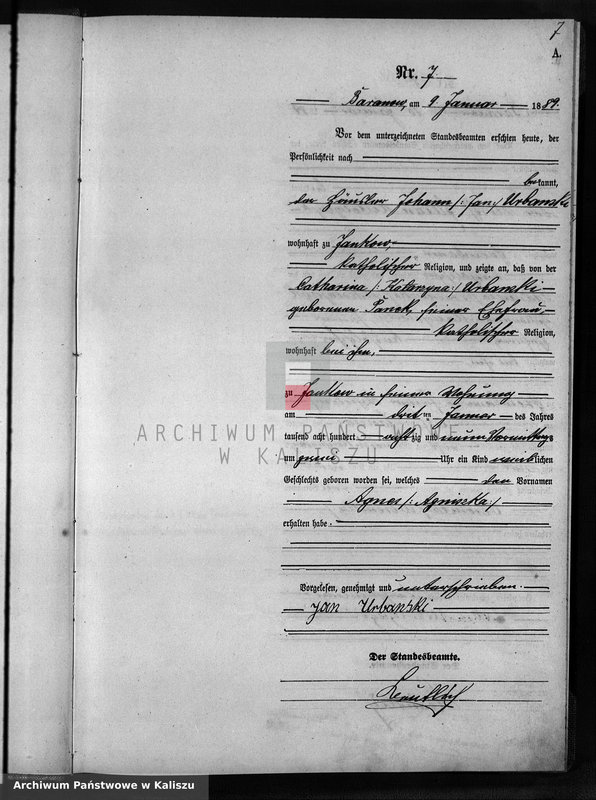 7
A.
Nr. 7
Baranow, am 9 Januar 1889.
Vor dem unterzeichneten Standesbeamten erschien heute, der
Persönlichkeit nach
bekannt,
der Häusler Johann /: Jan :/ Urbanski
wohnhaft zu Jankow,
katholischer Religion, und zeigte an, daß von der
Catharina /: Katarzyna :/ Urbanski
geborenen Panek, seiner Ehefrau
katholischer Religion,
wohnhaft bei ihm,
zu Jankow in seiner Wohnung
am dritten Januar des Jahres
tausend acht hundert achtzig und neun Vormittags
um Uhr ein Kind weiblichen
Geschlechts geboren worden sei, welches den Vornamen
Agnes /: Agnieszka :/
erhalten habe.
Vorgelesen, genehmigt und unterschrieben.
Jan Urbanski
Der Standesbeamte.
ARCHIWUM PAŃSTWOWE
W KALISZU
Archiwum Państwowe w Kaliszu